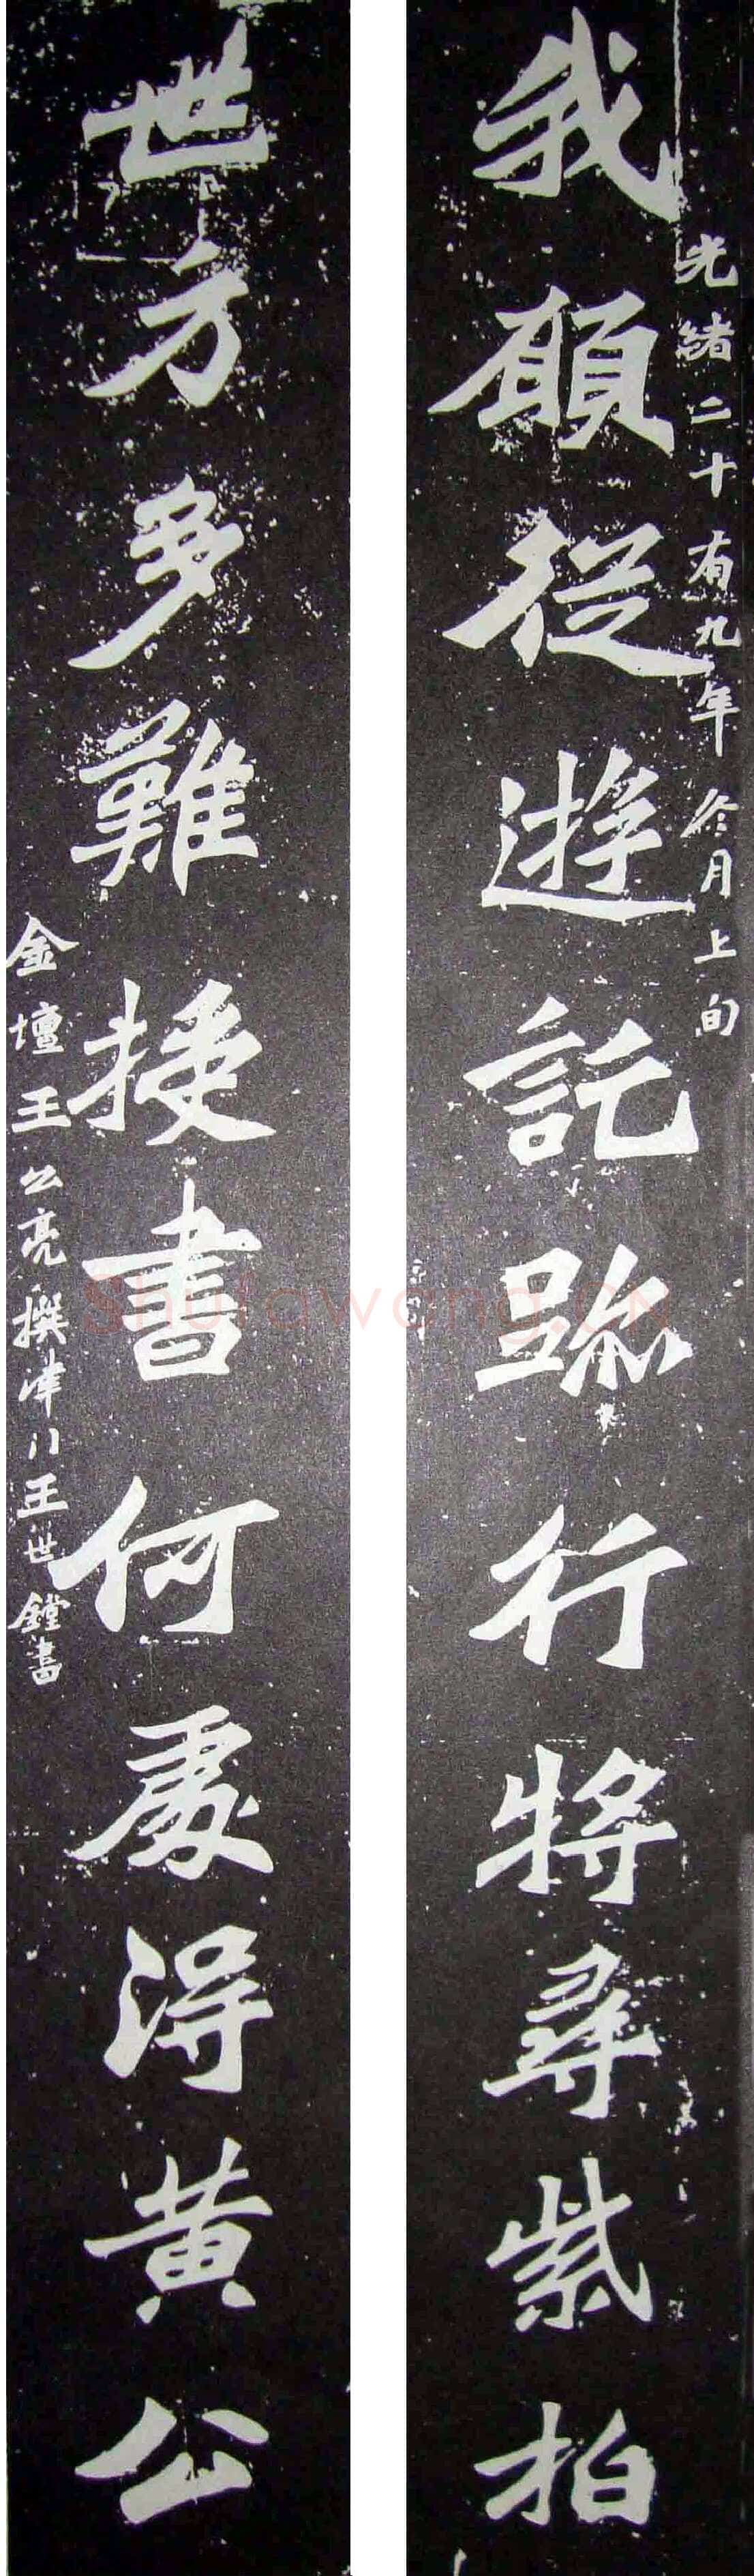 光緒二十有九年冬月上旬
我願從遊託跡行將尋紫柏
世方多難授書何處得黃公
金壇王公亮撰津门王世鏜書
Shufawang.CN